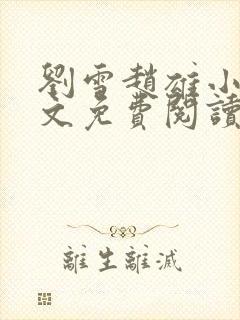 劉雪趙雄小
文免費閱讀
離生離滅